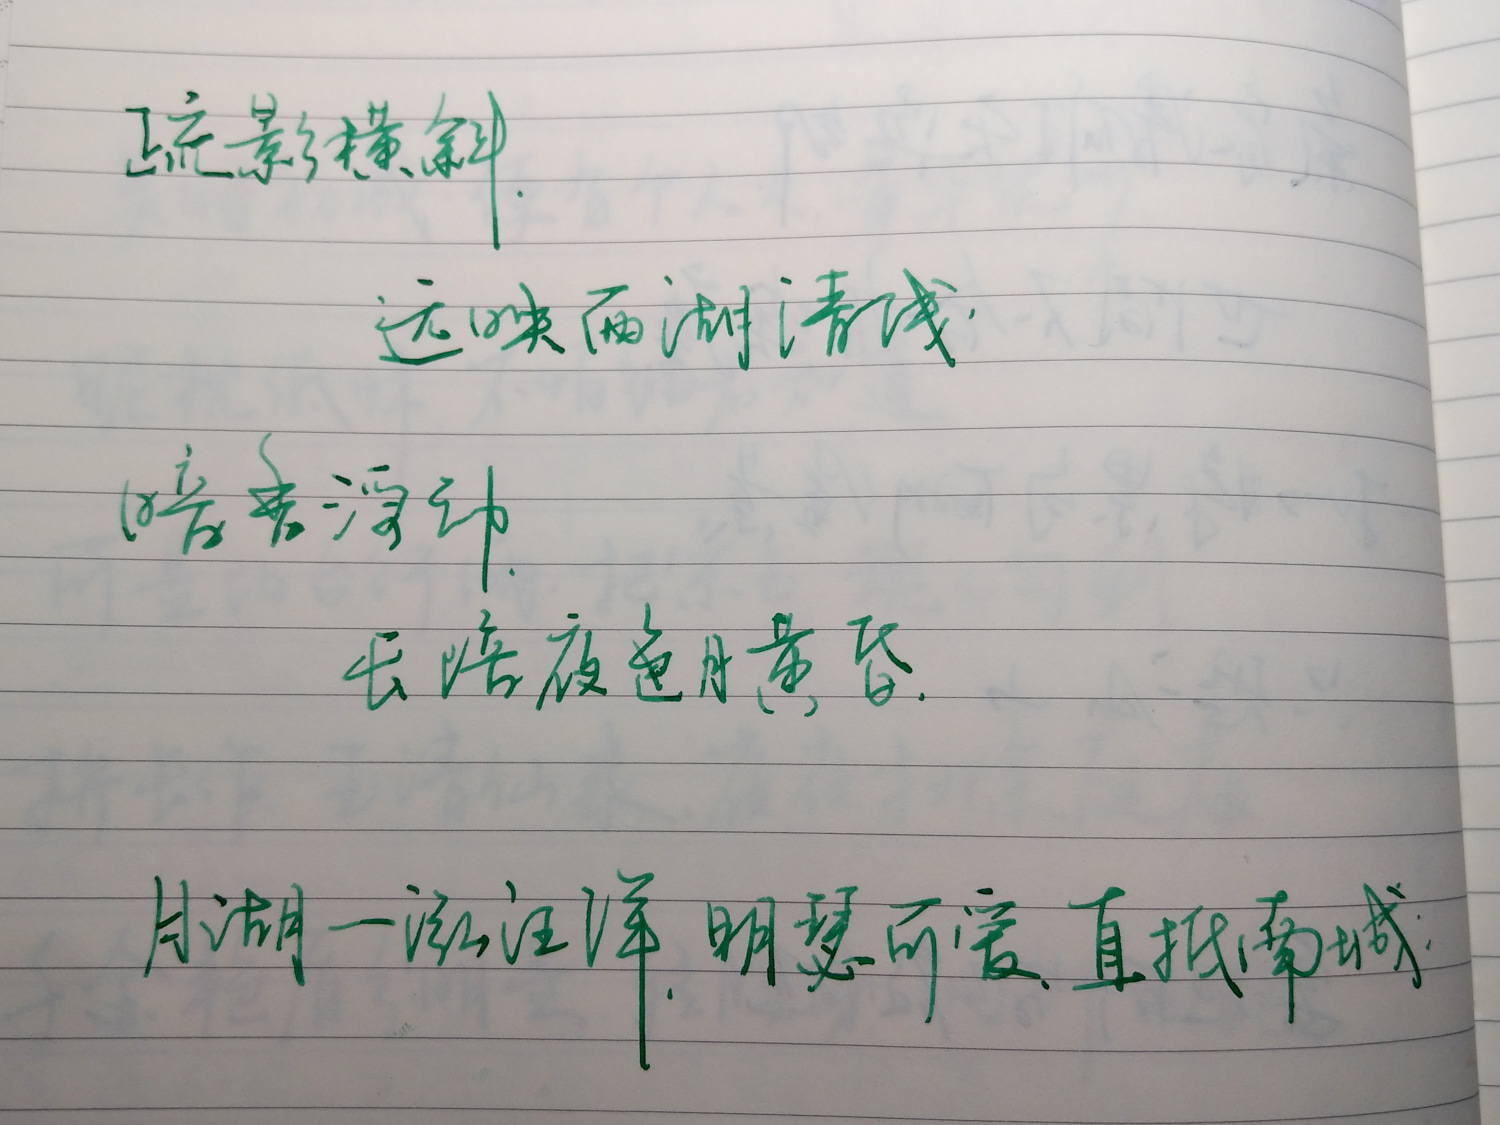 疏影横斜.
远映西湖清浅.
暗香浮动.
长陪夜色月黄昏.
月湖一泓汪洋.明瑟可爱、直抵南城.